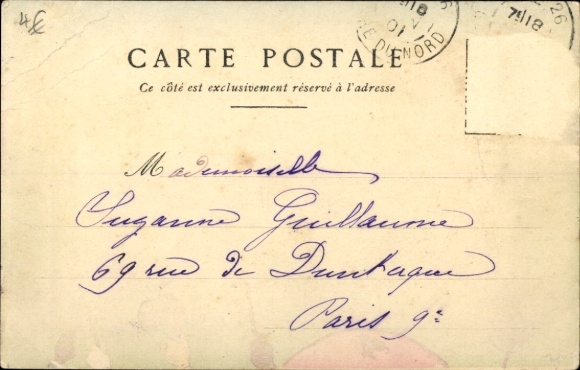 4€
7E 18
26
7E 18
01
RE DU NORD
CARTE POSTALE
Ce côté est exclusivement réservé à l'adresse
Mademoiselle
Suzanne Guillaume
69 rue de Dunkerque
Paris 9e